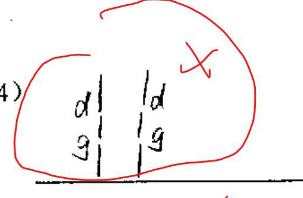 4)
d d
g g